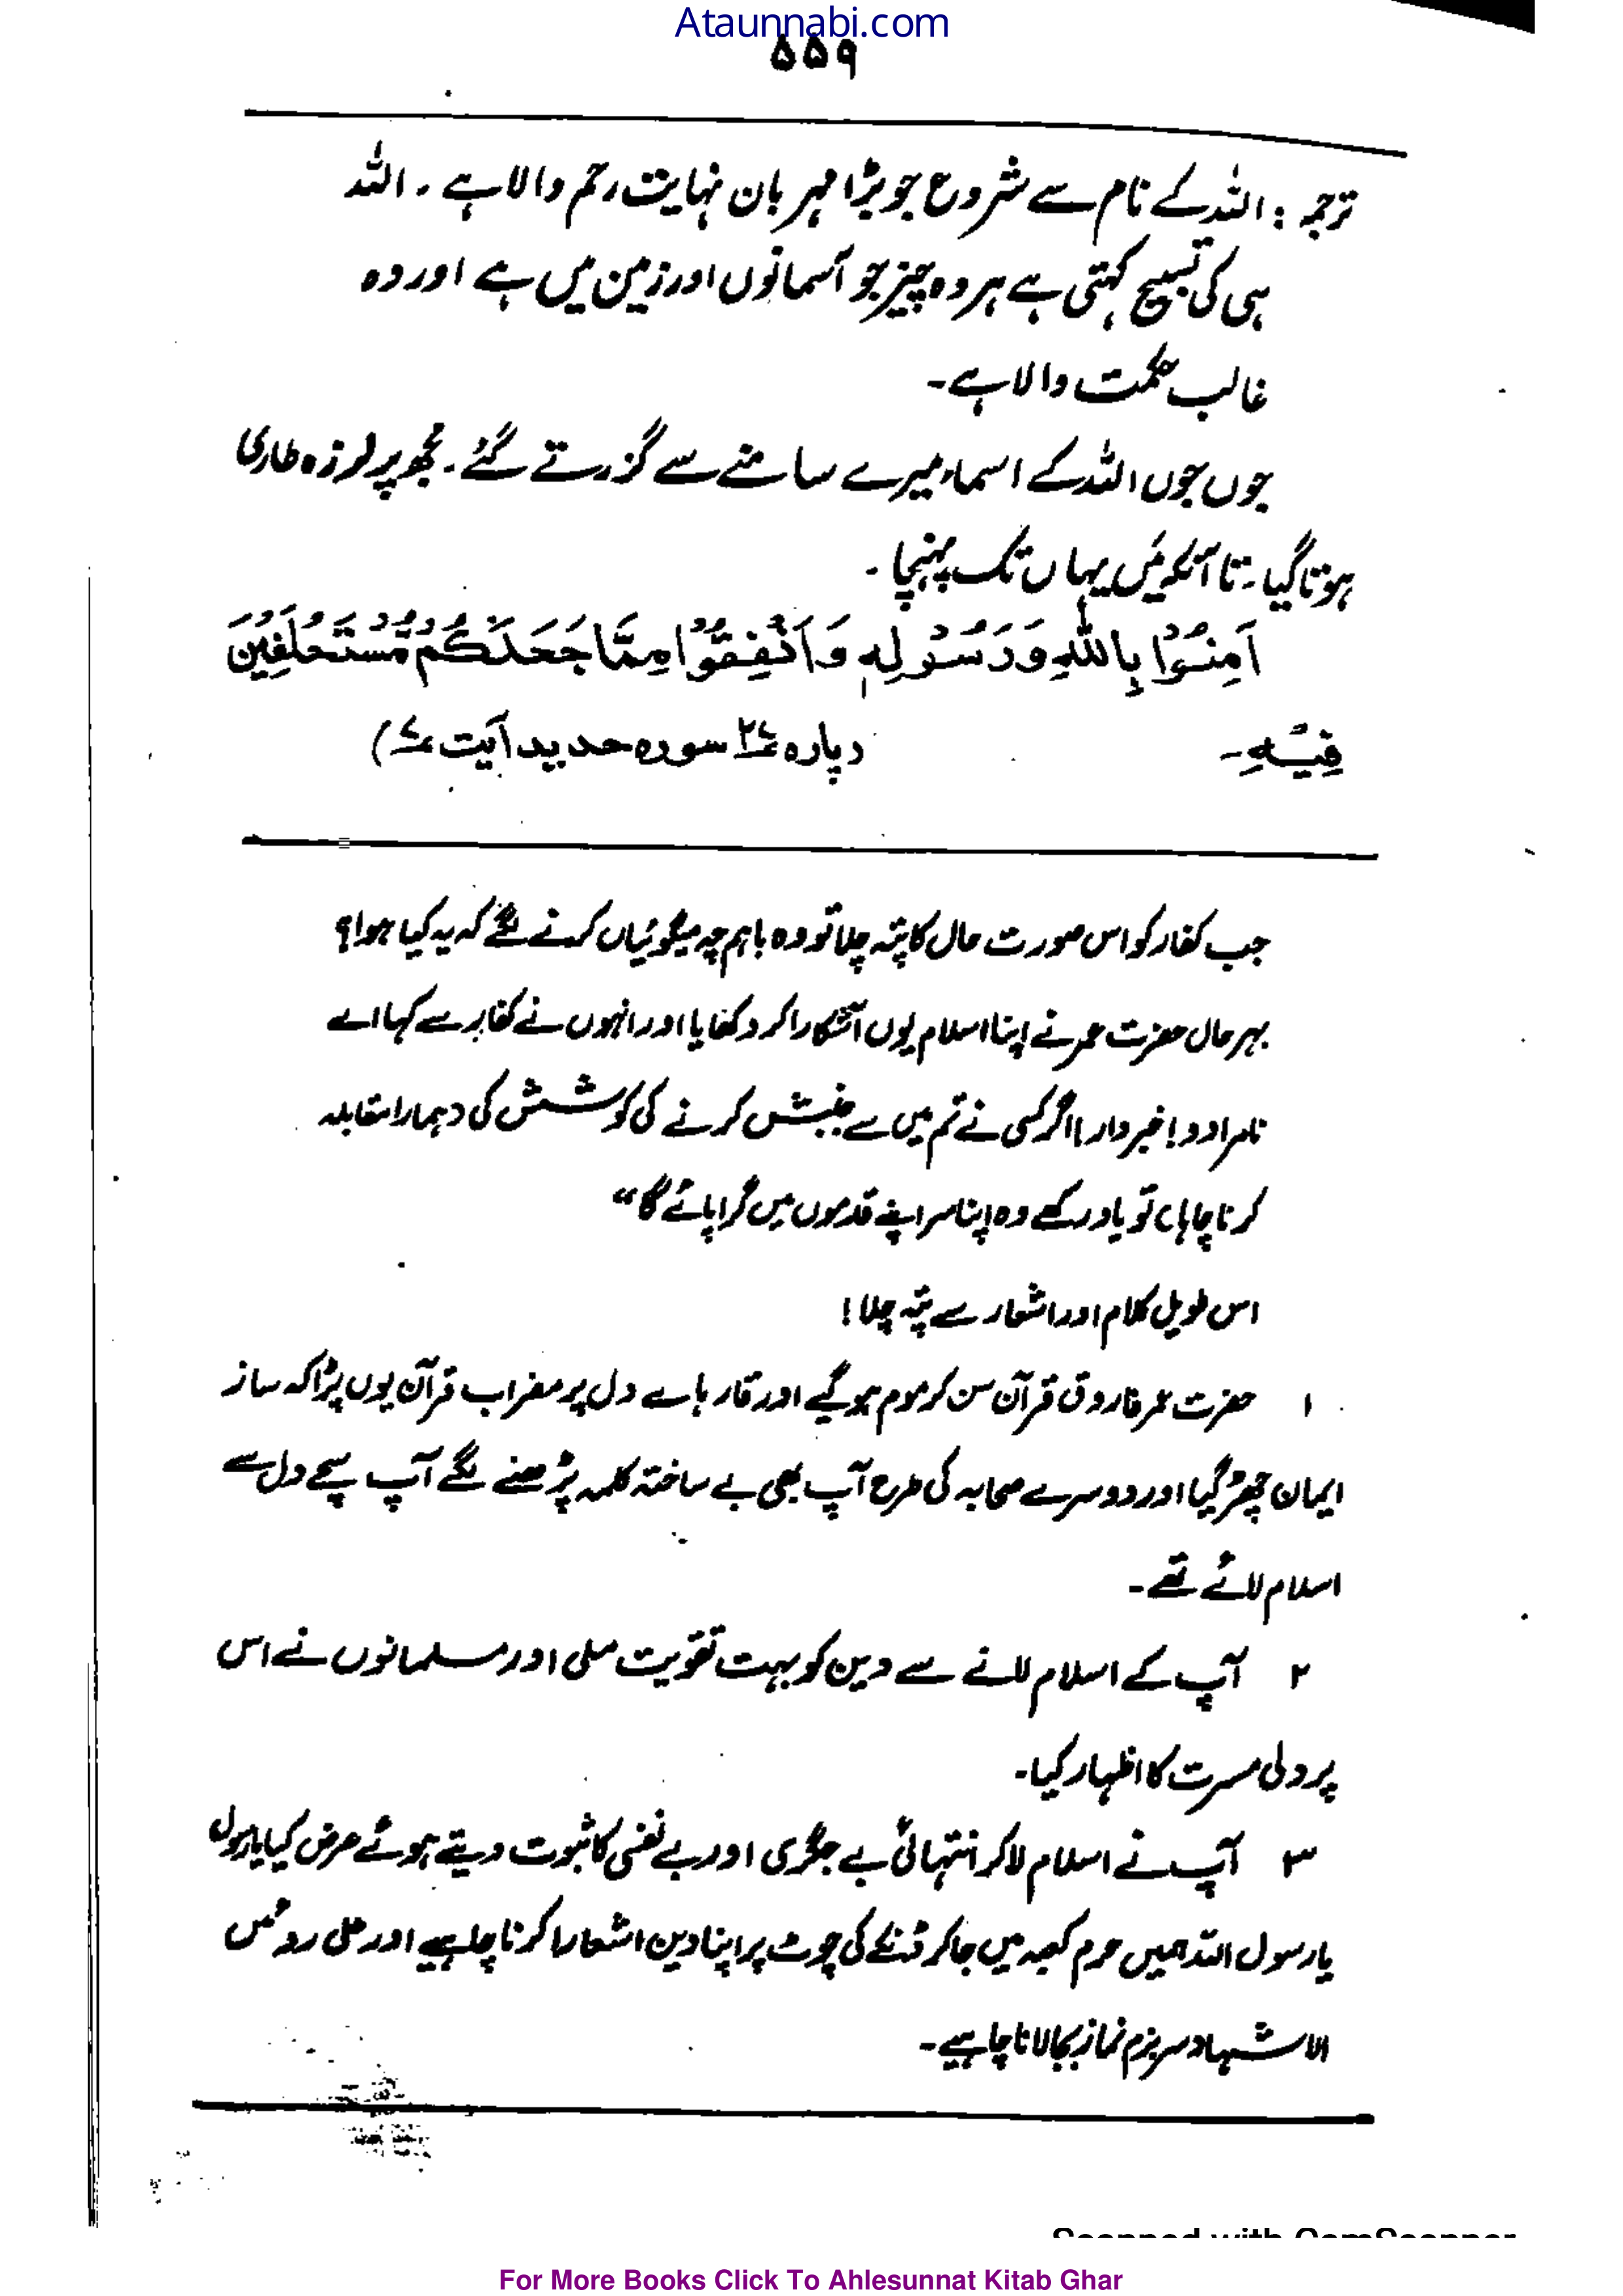 Ataunnabi.com
۵۵۹
ترجمہ : اللہ کے نام سے شروع جو بڑا مہربان نہایت رحم والا ہے ۔ اللہ
ہی کی تسبیح کہتی ہے ہر وہ چیز جو آسمانوں اور زمین میں ہے اور وہ
غالب حکمت والا ہے۔
جوں جوں اللہ کے اسماء میرے سامنے سے گزرتے گئے ۔ مجھ پر لرزہ طاری
ہوتا گیا ۔ تا آنکہ میں یہاں تک پہنچا ۔
اٰمِنُوْا بِاللّٰهِ وَرَسُوْلِهٖ وَاَنْفِقُوْا مِمَّا جَعَلَكُمْ مُّسْتَخْلَفِيْنَ
فِيْهِ۔ (پارہ ۲۷ سورہ حدید آیت ۷)
جب کفار کو اس صورت حال کا پتہ چلا تو وہ باہم چہ میگوئیاں کرنے لگے کہ یہ کیا ہوا؟
بہر حال حضرت عمر نے اپنا اسلام یوں آشکارا کر دکھایا اور انہوں نے کفار سے کہا اے
نامرادو! خبردار! اگر کسی نے تم میں سے جنبش کرنے کی کوشش کی (ہمارا مقابلہ
کرنا چاہا) تو یاد رکھے وہ اپنا سر اپنے قدموں میں گرا پائے گا“
اس طویل کلام اور اشعار سے پتہ چلا!
۱ حضرت عمر فاروق قرآن سن کر موم ہو گیے اور تار ہائے دل پر مضراب قرآن یوں پڑا کہ ساز
ایمان چھڑ گیا اور دوسرے صحابہ کی طرح آپ بھی بے ساختہ کلمہ پڑھنے لگے آپ سچے دل سے
اسلام لائے تھے۔
۲ آپ کے اسلام لانے سے دین کو بہت تقویت ملی اور مسلمانوں نے اس
پر دلی مسرت کا اظہار کیا۔
۳ آپ نے اسلام لا کر انتہائی بے جگری اور بے نفسی کا ثبوت دیتے ہوئے عرض کیا یا رسول
یا رسول اللہ ہمیں حرم کعبہ میں جا کر ڈنکے کی چوٹ پر اپنا دین اشعارا کرنا چاہیے اور علی روئس
الاشہاد سر بزم نماز بجا لانا چاہیے۔
Scanned with CamScanner
For More Books Click To Ahlesunnat Kitab Ghar